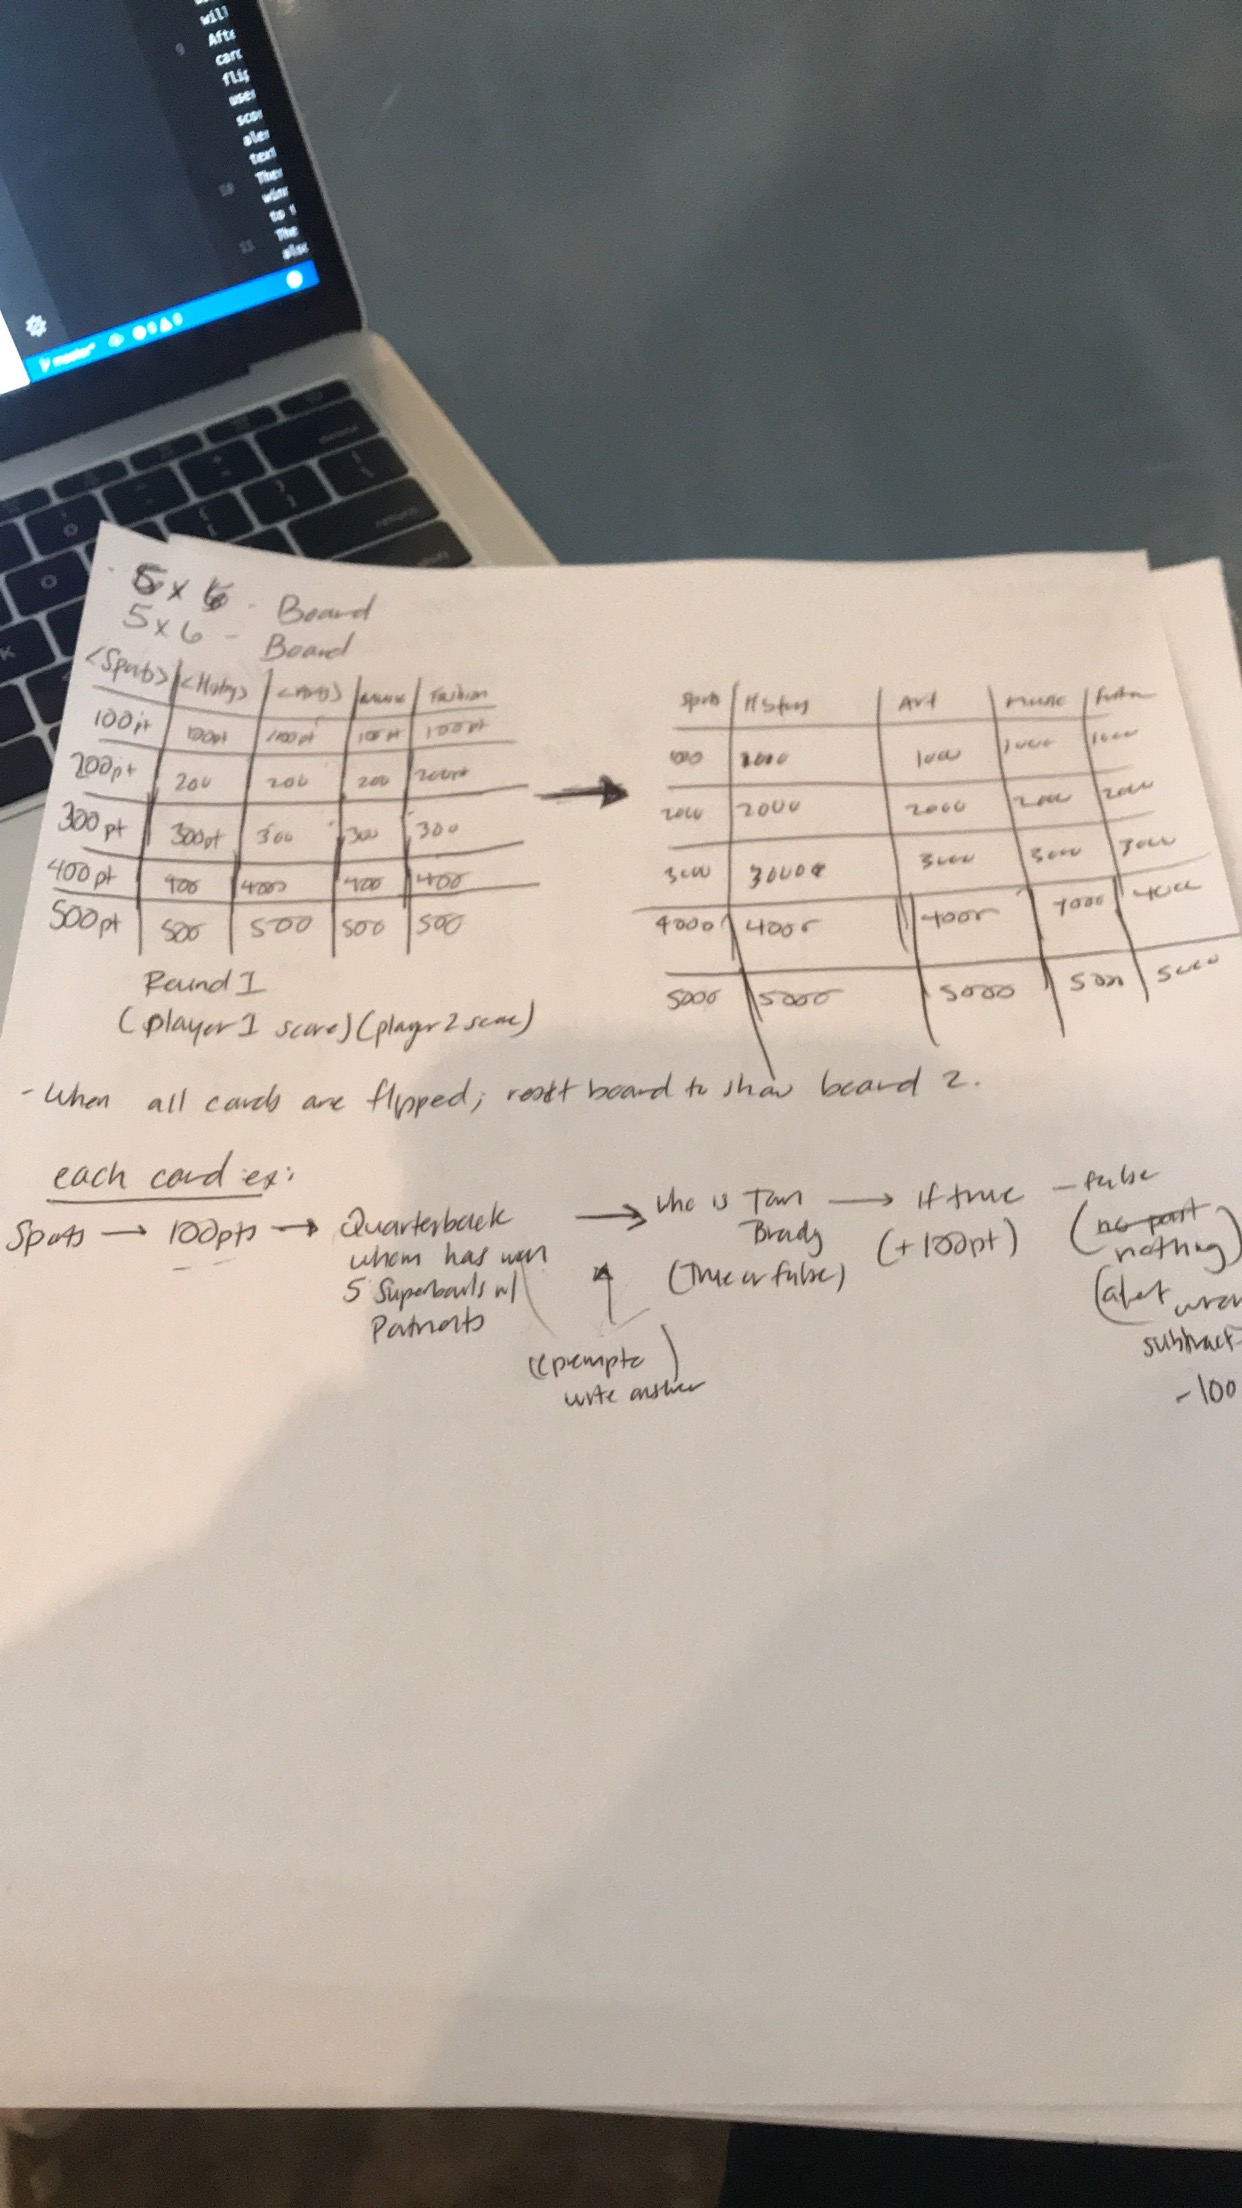 will
Afte
card
flip
user
scor
aler
text
9
Ther
10
to t
The
11
also
master*
delete
return
K
5 x 6 - Board
5 x 6 - Board
<Sports> <History> <Arts> Music Fashion
100pt 100pt 100pt 100pt 100pt
200pt 200 200 200 200pt
300pt 300pt 300 300 300
400pt 400 400 400 400
500pt 500 500 500 500
Round 1
(player 1 score) (player 2 score)
Sports History Art Music
1000 1000 1000 1000
2000 2000 2000 2000 2000
3000 3000 3000 3000 3000
4000 4000 4000 4000
5000 5000 5000 5000 5000
- When all cards are flipped; reset board to show board 2.
each card ex:
Sports → 100pts → Quarterback
whom has won
5 Superbowls w/
Patriots
→ who is Tom
Brady
(True or false)
→ if true
(+100pt)
- false
(no point
nothing)
(alert wron
subtract
-100
(prompt
write answer